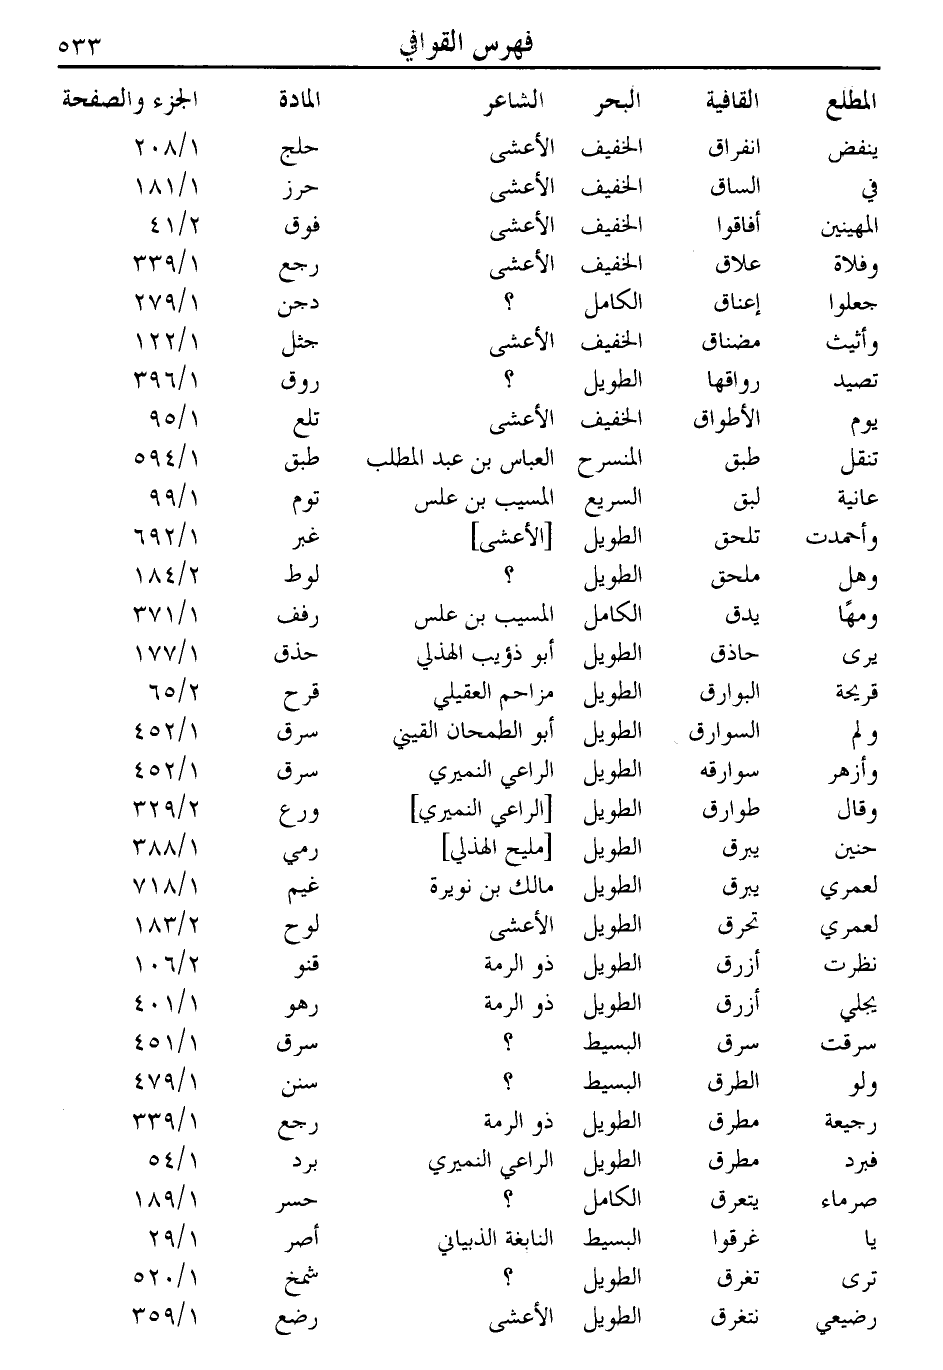 فهرس القوافي ٥٣٣
المطلع القافية البحر الشاعر المادة الجزء والصفحة
ينفض انفراق الخفيف الأعشى حلج ٢٠٨/١
في الساق الخفيف الأعشى حرز ١٨١/١
المهينين أفاقوا الخفيف الأعشى فوق ٤١/٢
وفلاة علاق الخفيف الأعشى رجع ٣٣٩/١
جعلوا إعناق الكامل ؟ دجن ٢٧٩/١
وأثيث مضناق الخفيف الأعشى جثل ١٢٢/١
تصيد رواقها الطويل ؟ روق ٣٩٦/١
يوم الأطواق الخفيف الأعشى تلع ٩٥/١
تنقل طبق المنسرح العباس بن عبد المطلب طبق ٥٩٤/١
عانية لبق السريع المسيب بن علس توم ٩٩/١
وأحمدت تلحق الطويل [الأعشى] غبر ٦٩٢/١
وهل ملحق الطويل ؟ لوط ١٨٤/٢
ومهًا يدق الكامل المسيب بن علس رفف ٣٧١/١
يرى حاذق الطويل أبو ذؤيب الهذلي حذق ١٧٧/١
قريحة البوارق الطويل مزاحم العقيلي قرح ٦٥/٢
ولم السوارق الطويل أبو الطمحان القيني سرق ٤٥٢/١
وأزهر سوارقه الطويل الراعي النميري سرق ٤٥٢/١
وقال طوارق الطويل [الراعي النميري] ورع ٣٢٩/٢
حنين يبرق الطويل [مليح الهذلي] رمي ٣٨٨/١
لعمري يبرق الطويل مالك بن نويرة غيم ٧١٨/١
لعمري تحرق الطويل الأعشى لوح ١٨٣/٢
نظرت أزرق الطويل ذو الرمة قنو ١٠٦/٢
يجلي أزرق الطويل ذو الرمة رهو ٤٠١/١
سرقت سرق البسيط ؟ سرق ٤٥١/١
ولو الطرق البسيط ؟ سنن ٤٧٩/١
رجيعة مطرق الطويل ذو الرمة رجع ٣٣٩/١
فبرد مطرق الطويل الراعي النميري برد ٥٤/١
صرماء يتعرق الكامل ؟ حسر ١٨٩/١
يا غرقوا البسيط النابغة الذبياني أصر ٢٩/١
ترى تغرق الطويل ؟ شمخ ٥٢٠/١
رضيعي نتغرق الطويل الأعشى رضع ٣٥٩/١